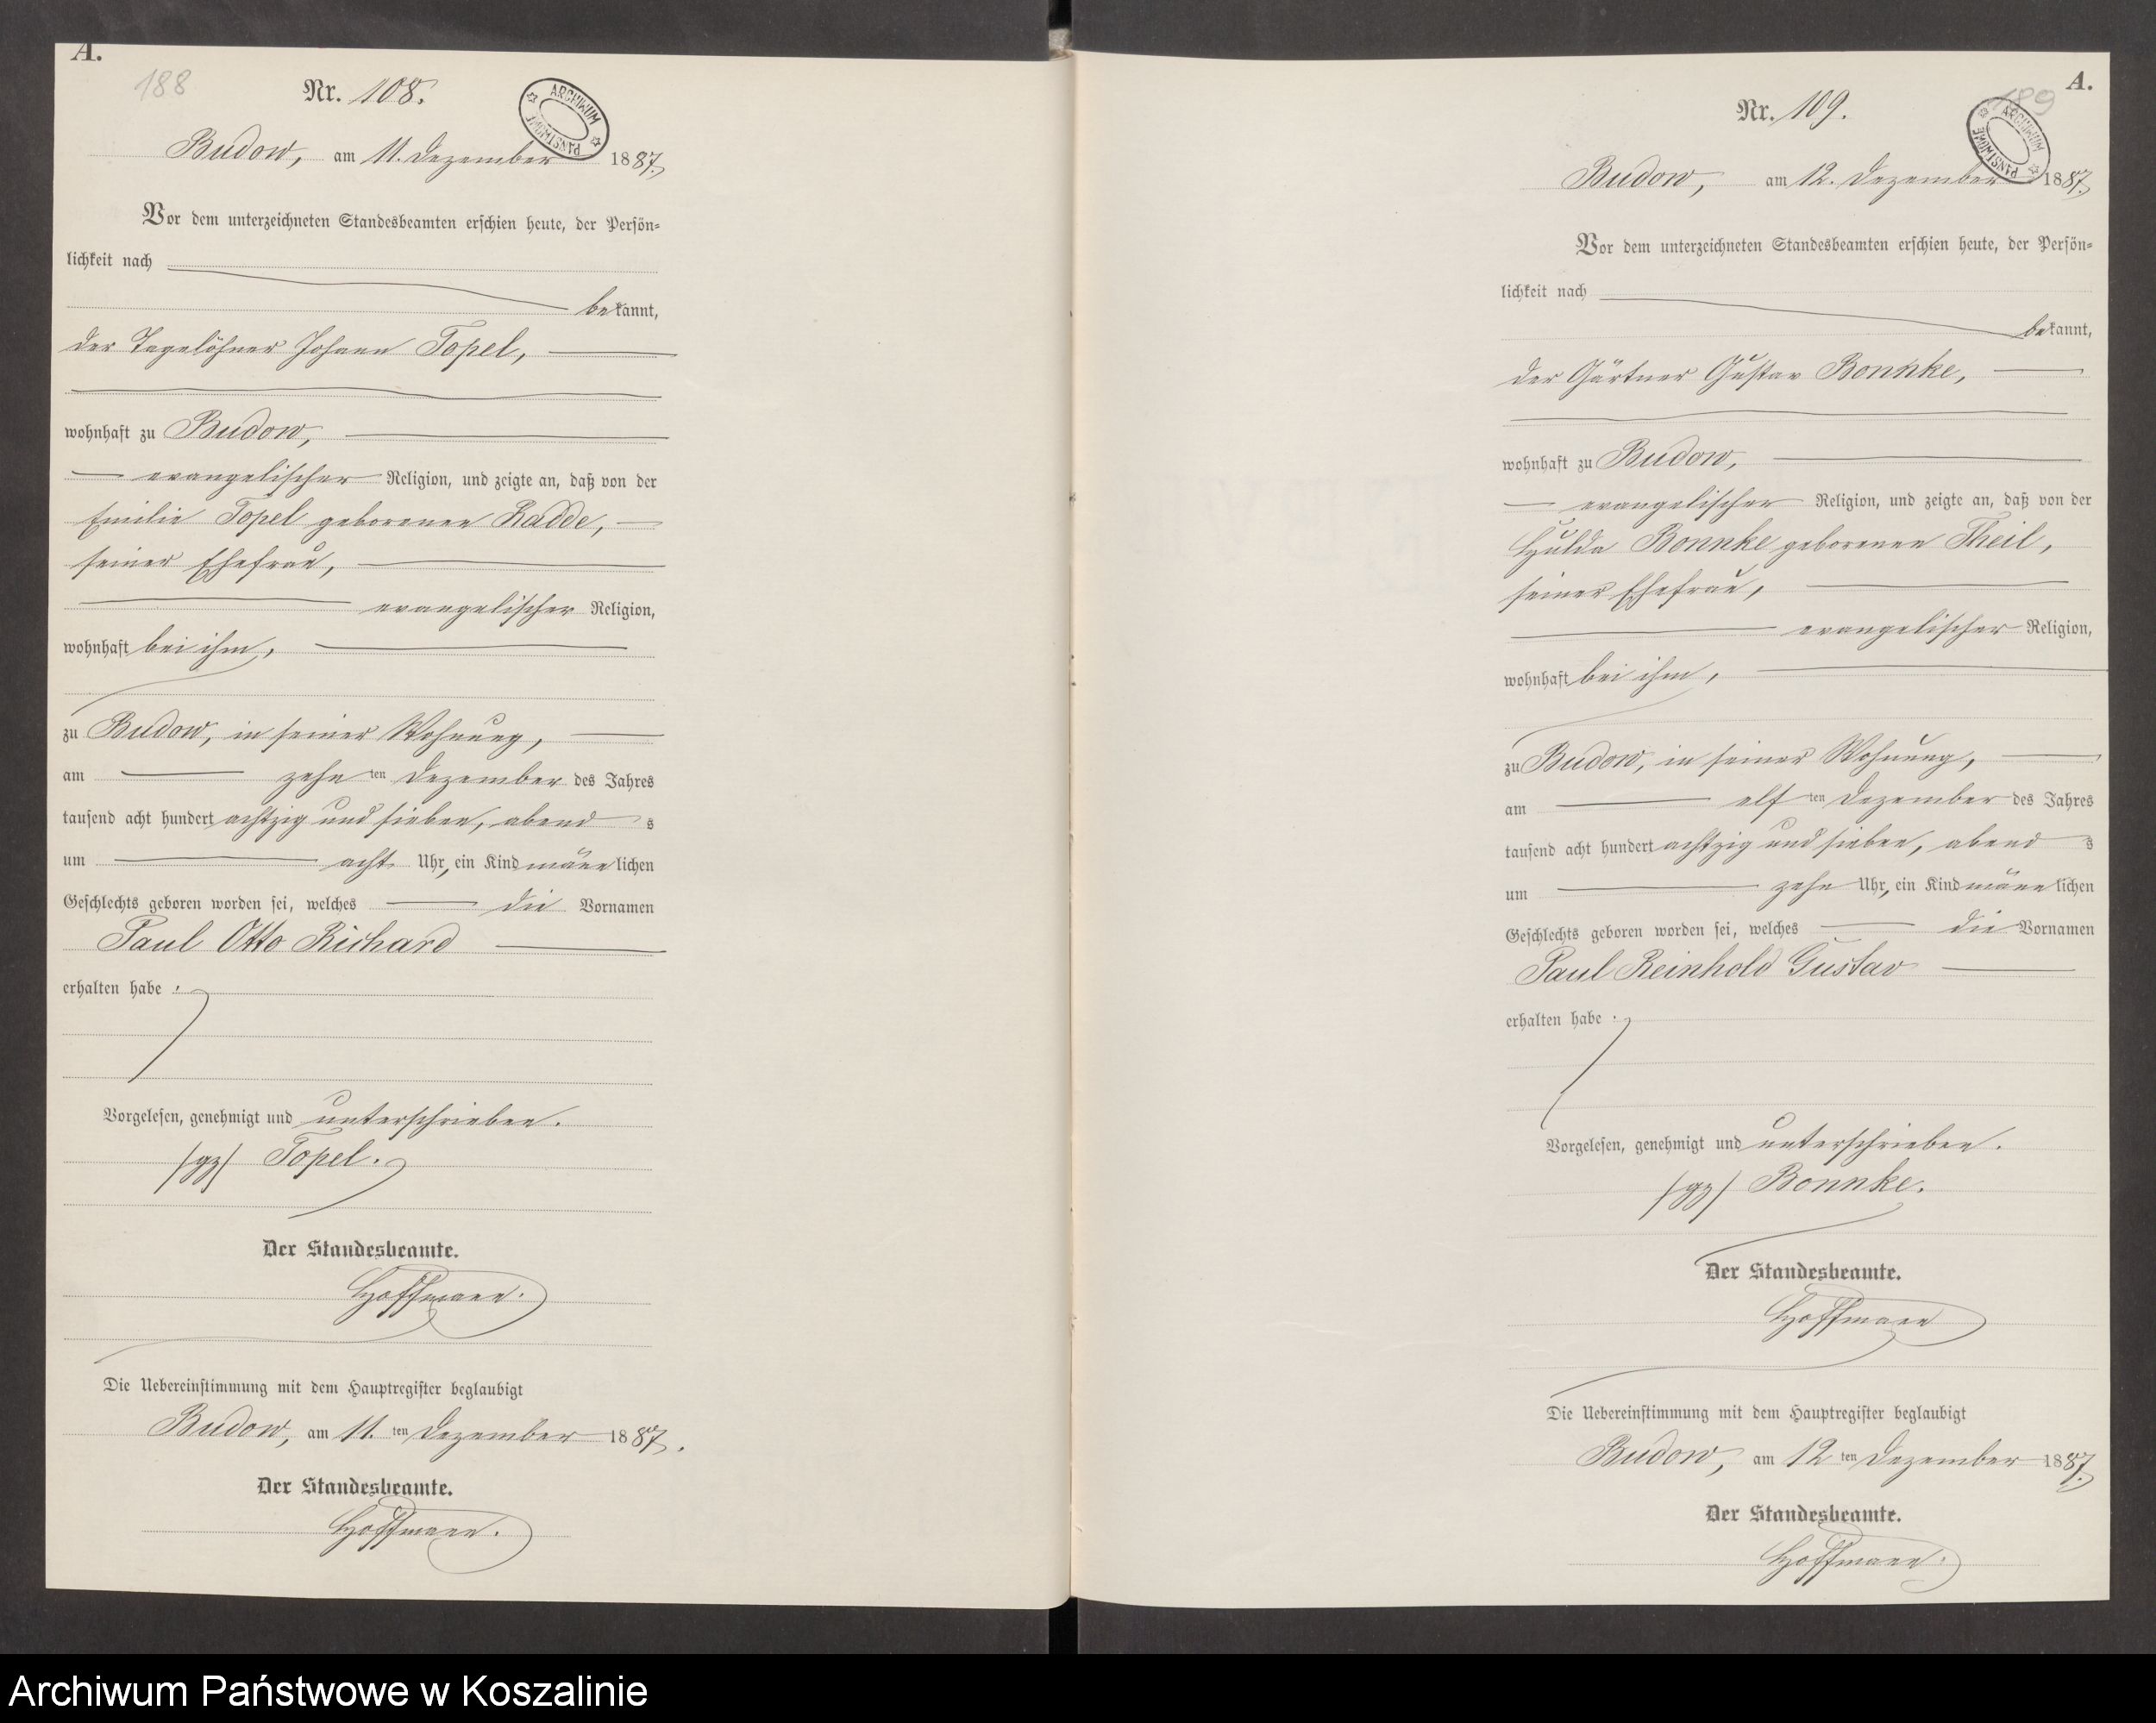 A.
188
Nr. 108.
ARCHIWUM PAŃSTWOWE
Budow, am 11. Dezember 1887.
Vor dem unterzeichneten Standesbeamten erschien heute, der Persön-
lichkeit nach
bekannt,
der Tagelöhner Johann Topel,
wohnhaft zu Budow,
evangelischer Religion, und zeigte an, daß von der
Emilie Topel geborenen Radde,
seiner Ehefrau,
evangelischer Religion,
wohnhaft bei ihm,
zu Budow, in seiner Wohnung,
am zehn ten Dezember des Jahres
tausend acht hundert achtzig und sieben, abend s
um acht Uhr, ein Kind männlichen
Geschlechts geboren worden sei, welches die Vornamen
Paul Otto Richard
erhalten habe.
Vorgelesen, genehmigt und unterschrieben.
/gz/ Topel.
Der Standesbeamte.
Hoffmann.
Die Uebereinstimmung mit dem Hauptregister beglaubigt
Budow, am 11. ten Dezember 1887.
Der Standesbeamte.
Hoffmann.
A.
189
Nr. 109.
ARCHIWUM PAŃSTWOWE
Budow, am 12. Dezember 1887.
Vor dem unterzeichneten Standesbeamten erschien heute, der Persön-
lichkeit nach
bekannt,
der Gärtner Gustav Bonnke,
wohnhaft zu Budow,
evangelischer Religion, und zeigte an, daß von der
Hulda Bonnke geborenen Theil,
seiner Ehefrau,
evangelischer Religion,
wohnhaft bei ihm,
zu Budow, in seiner Wohnung,
am elf ten Dezember des Jahres
tausend acht hundert achtzig und sieben, abend s
um zehn Uhr, ein Kind männlichen
Geschlechts geboren worden sei, welches die Vornamen
Paul Reinhold Gustav
erhalten habe.
Vorgelesen, genehmigt und unterschrieben.
/gz/ Bonnke.
Der Standesbeamte.
Hoffmann
Die Uebereinstimmung mit dem Hauptregister beglaubigt
Budow, am 12 ten Dezember 1887.
Der Standesbeamte.
Hoffmann.
Archiwum Państwowe w Koszalinie